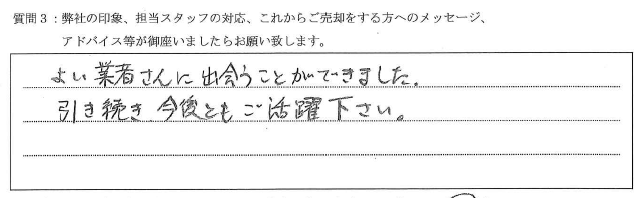 質問３：弊社の印象、担当スタッフの対応、これからご売却をする方へのメッセージ、
アドバイス等が御座いましたらお願い致します。
よい業者さんに出会うことができました。
引き続き今後ともご活躍下さい。